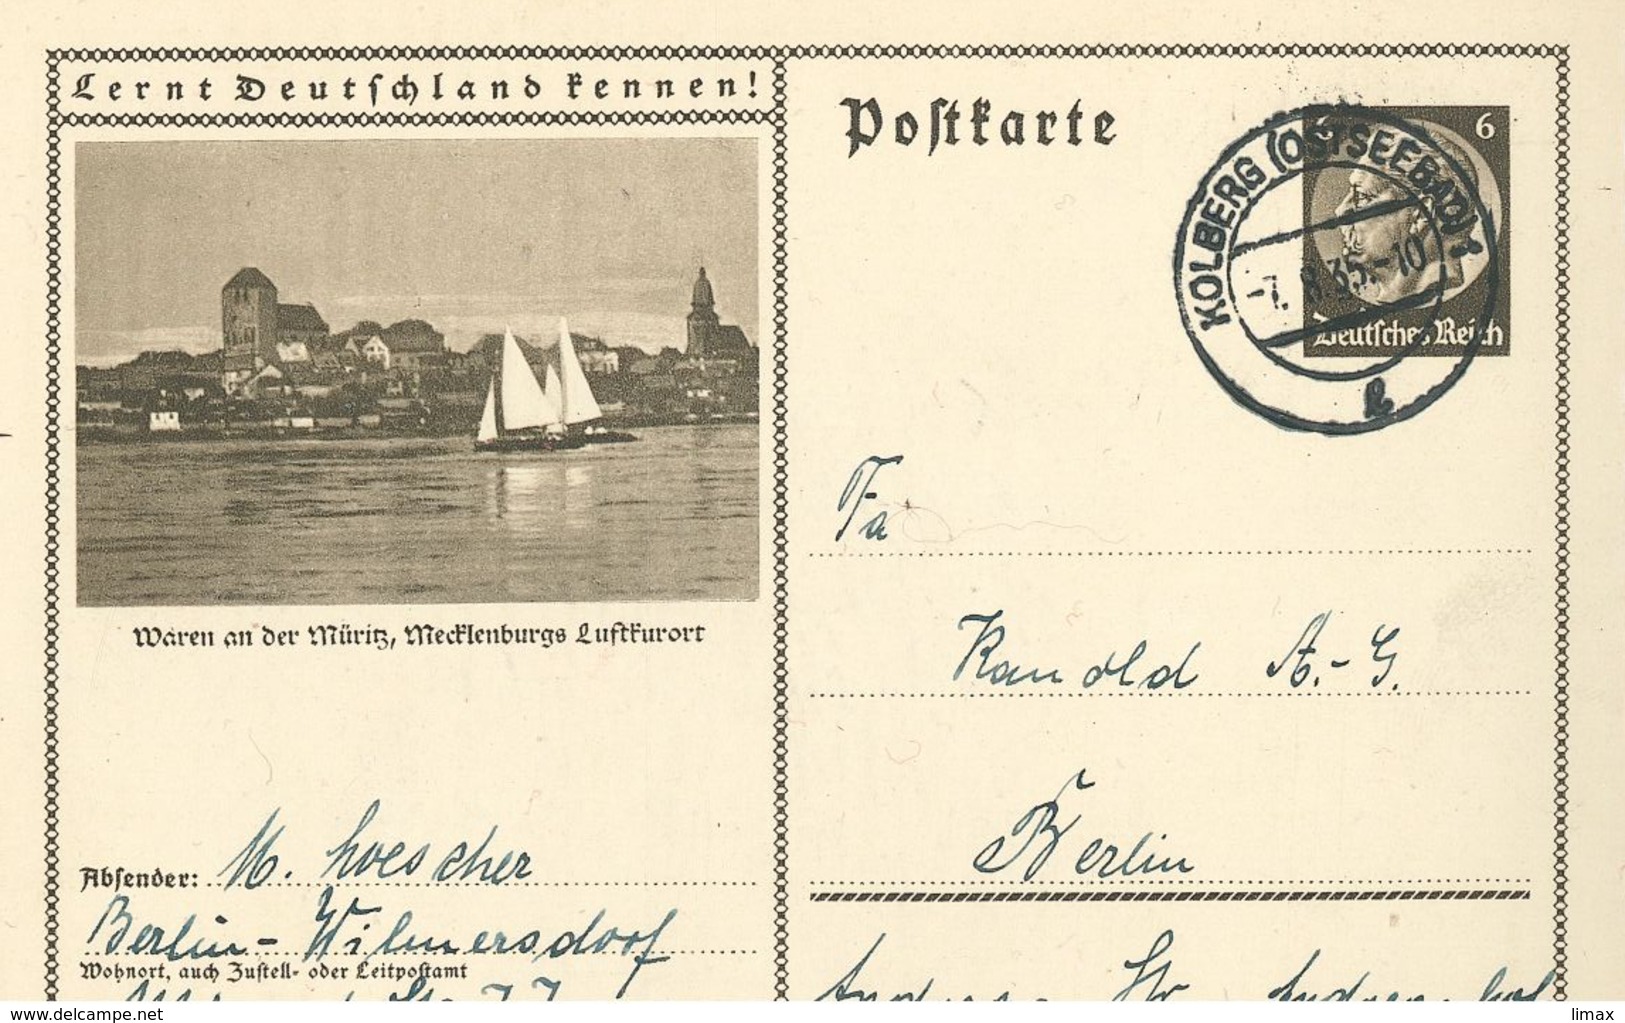 Lernt Deutschland kennen!
Postkarte
KOLBERG (OSTSEEBAD) 1
-7.8.35.-10
k
6
Deutsches Reich
Waren an der Müritz, Mecklenburgs Luftkurort
Fa
Kanold A.-G.
Berlin
Absender: M. Loescher
Berlin-Wilmersdorf
Wohnort, auch Zustell- oder Leitpostamt
Str. 77
Andreas- Str
delcampe.net
limax